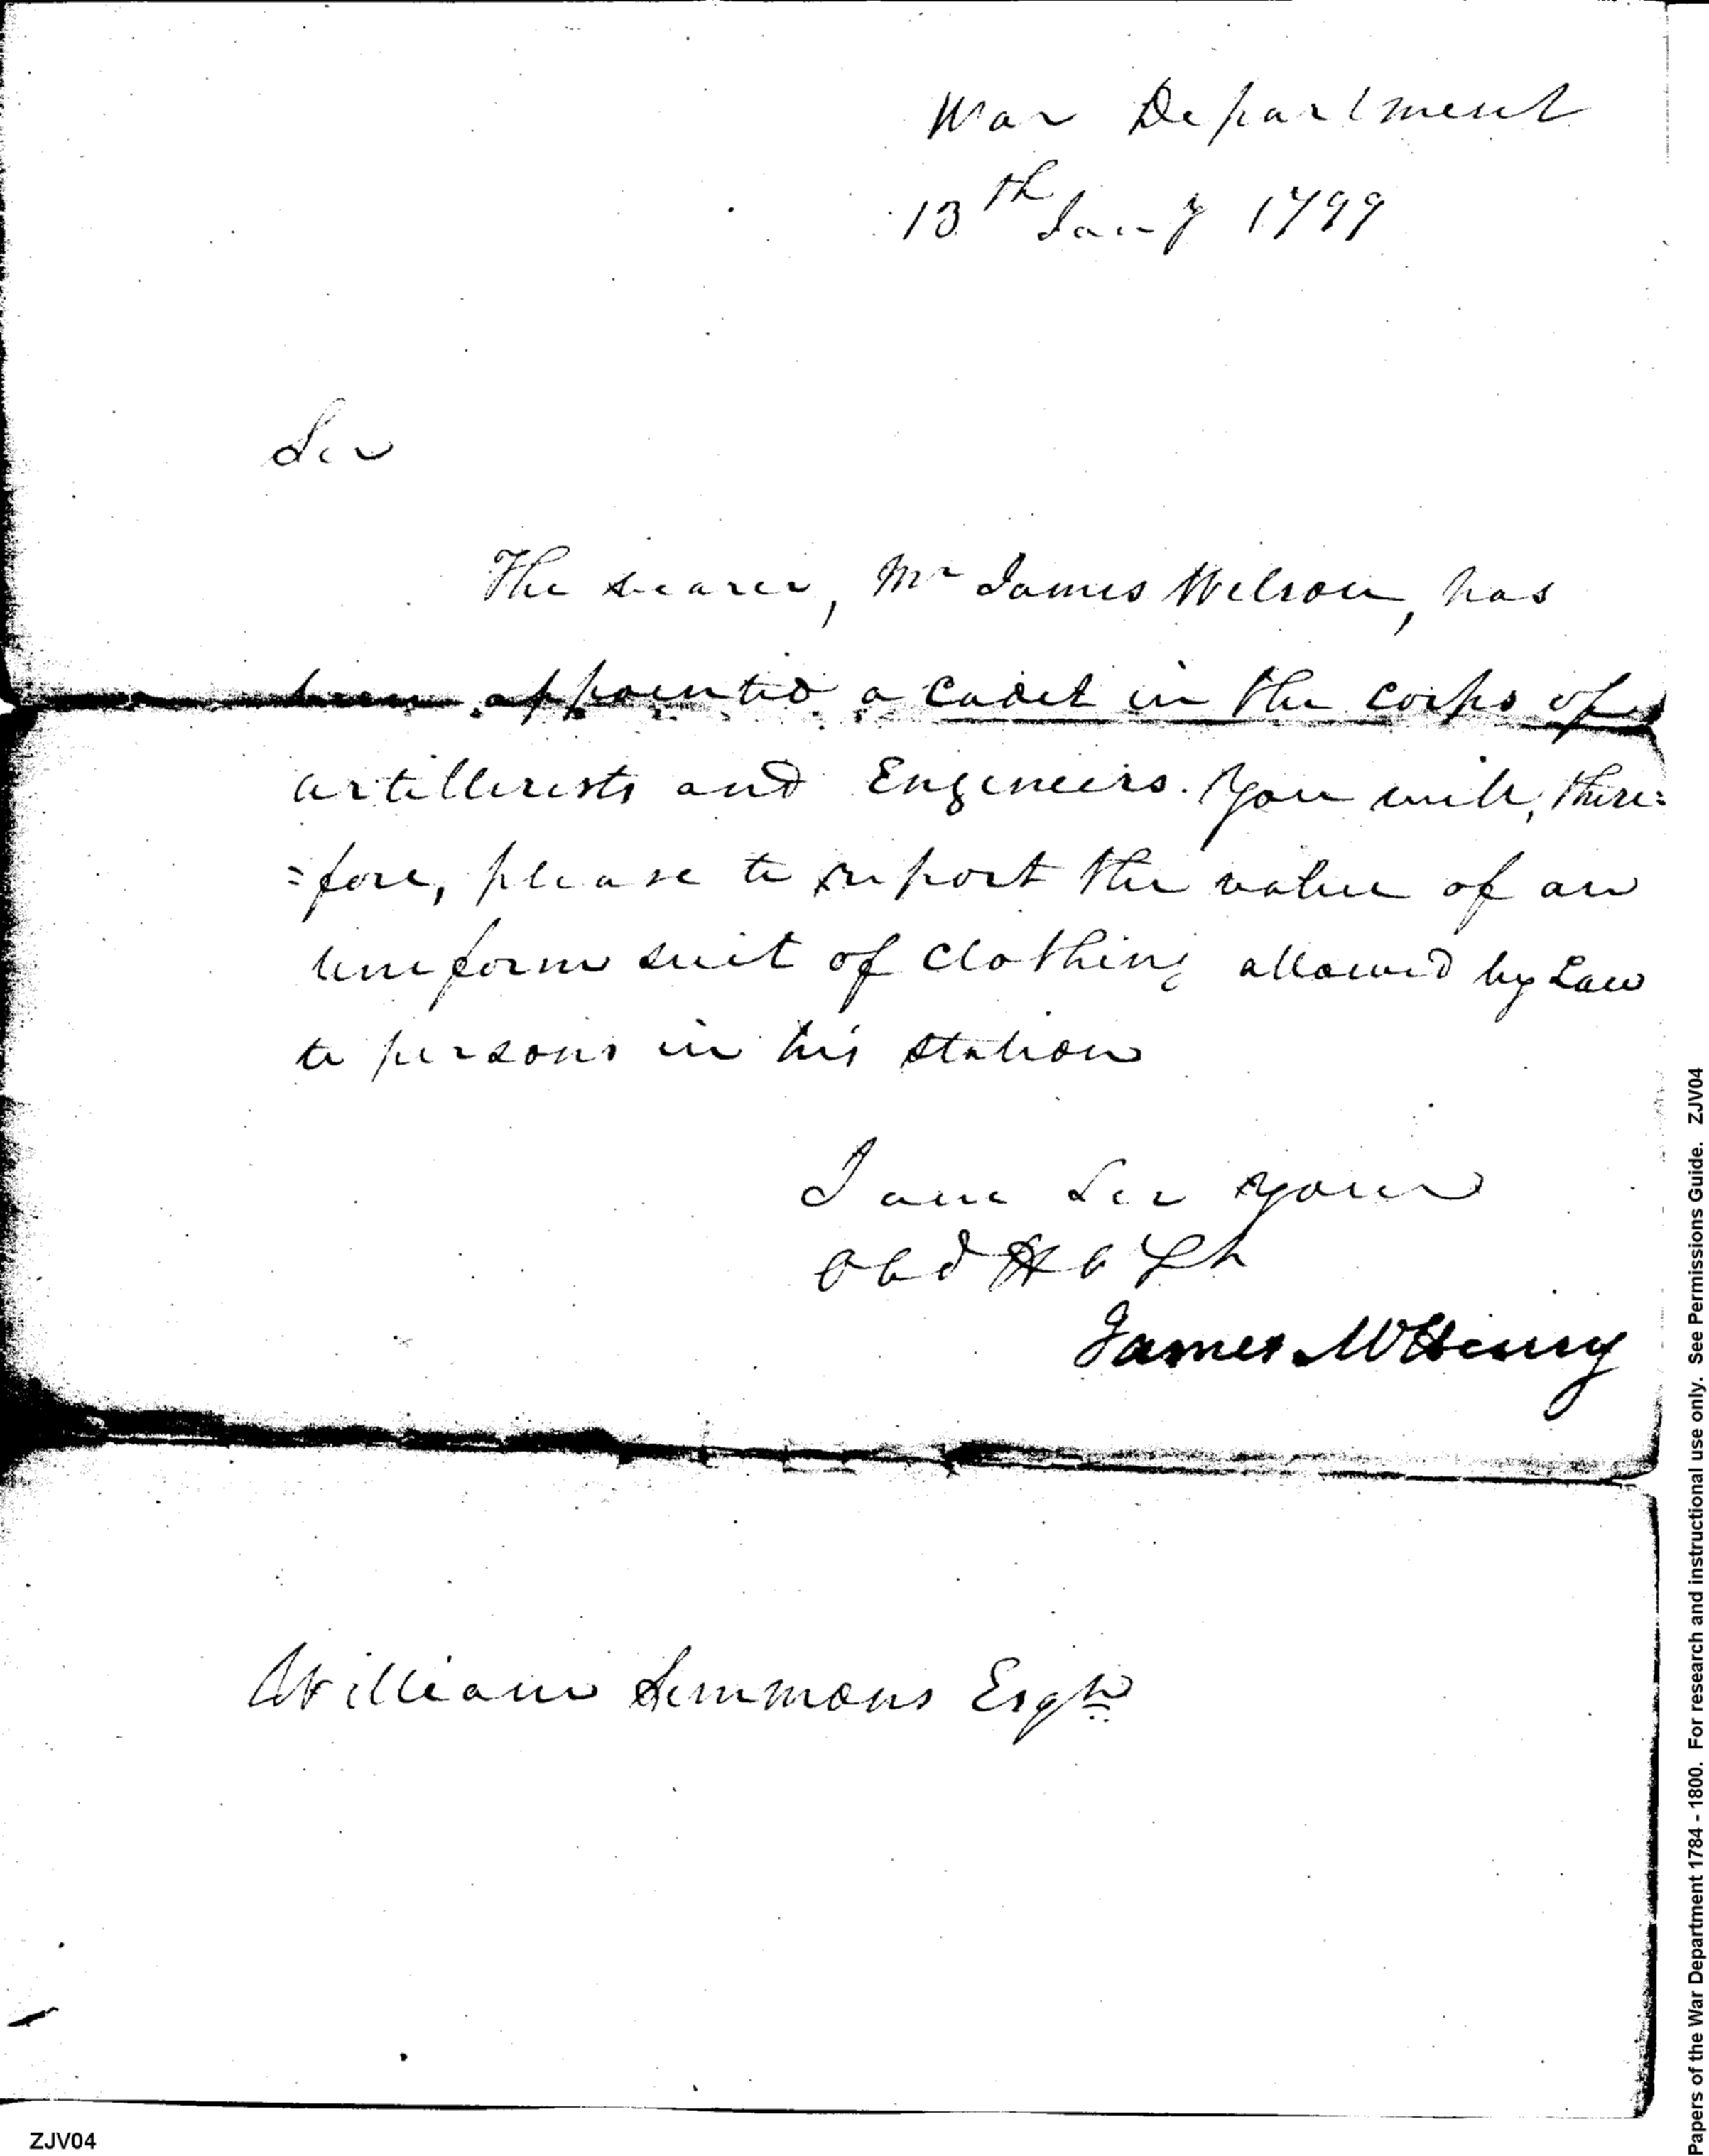 War Department
13th Jany 1799
Sir
The bearer, Mr James Wilson, has
been appointed a Cadet in the corps of
artillerists and Engineers. You will, there=
=fore, please to report the value of an
uniform suit of clothing allowed by Law
to persons in his station
I am Sir your
Obd H
James McHenry
William Simmons Esqr
ZJV04
Papers of the War Department 1784 - 1800. For research and instructional use only. See Permissions Guide. ZJV04